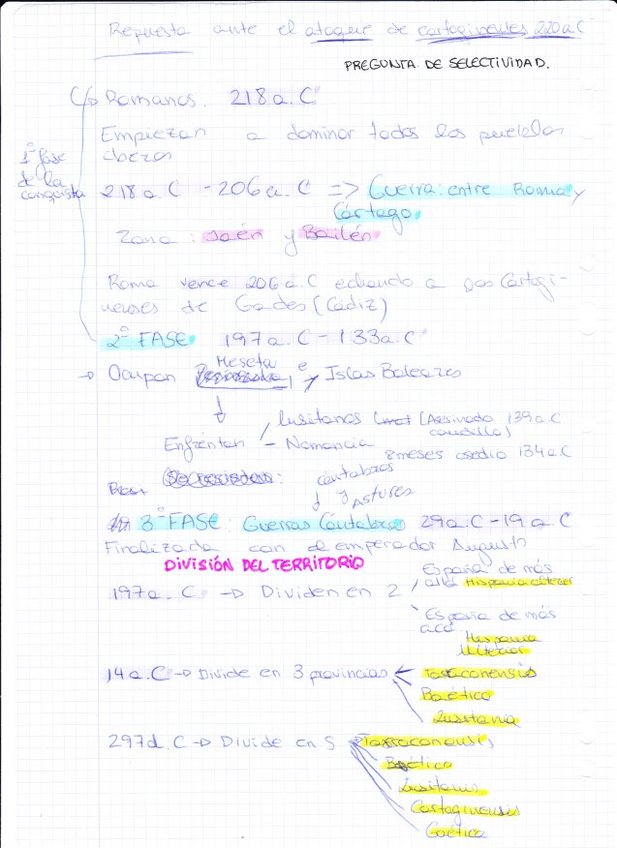 Repuesta ante el ataque de cartagineses 220a.C
PREGUNTA DE SELECTIVIDAD.
Romanos. 218a.C
Empiezan a dominar todos los pueblos
iberos
1º fase
de la
conquista
218a.C - 206a.C => Guerra: entre Roma y
Cártago.
Zona: Jaén y Bailén
Roma vence 206a.C echando a los Cartagi-
neuses de Gades (Cádiz)
2º FASE 197a.C - 133a.C
→ Ocupan Meseta e Islas Baleares
Enfrentan
lusitanos (Asesinado 139a.C
caudillo)
Numancia 8 meses asedio 134a.C
cántabros
y Astures
3º FASE: Guerras Cántabras 29a.C - 19a.C
Finalizada con el emperador Augusto
DIVISIÓN DEL TERRITORIO
197a.C → Dividen en 2
España de más
allá Hispania citerior
España de más
acá Hispania
Ulterior
14a.C → Divide en 3 provincias
Tarraconensis
Baético
Lusitania
297d.C → Divide en 5
Tarraconensis
Baético
Lusitania
Cartaginensis
Gaética